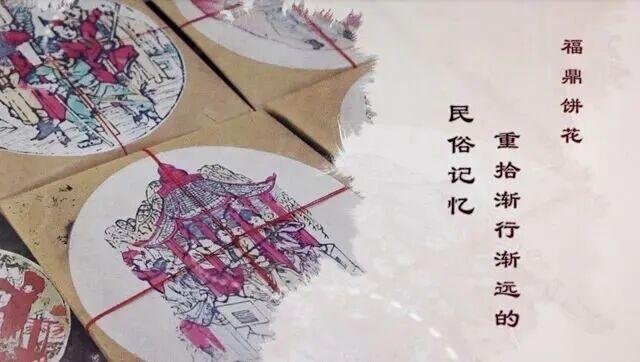 福鼎饼花
重拾渐行渐远的
民俗记忆